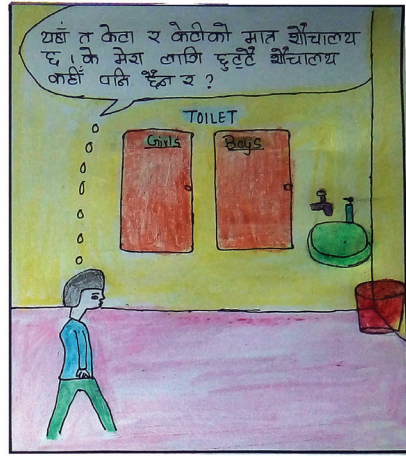 यहाँ त केटा र केटीको मात्र शौचालय
छ । के मेरा लागि छुट्टै शौचालय
कहीँ पनि छैन र ?
TOILET
Girls
Boys